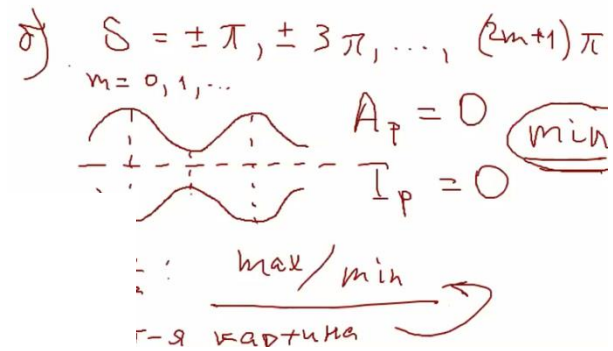 б) δ = ± π, ± 3π, ..., (2m+1) π
m = 0, 1, ...
A_p = 0
min
I_p = 0
: max/min
т-я картина